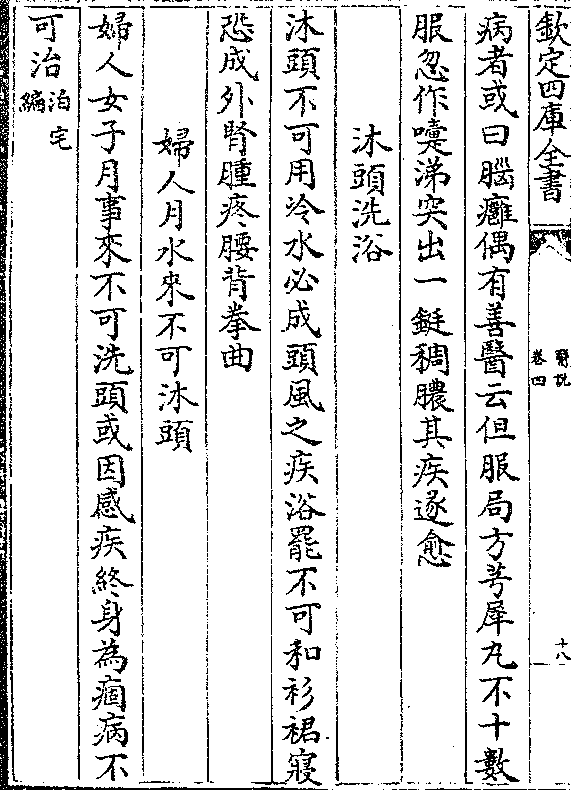 欽定四庫全書
醫説
卷四
十八
病者或曰腦癰偶有善醫云但服局方芎犀丸不十數
服忽作嚏涕突出一鋌稠膿其疾遂愈
沐頭洗浴
沐頭不可用冷水必成頭風之疾浴罷不可和衫裙寢
恐成外腎腫疼腰背拳曲
婦人月水來不可沐頭
婦人女子月事來不可洗頭或因感疾終身為痼病不
可治泊宅
編